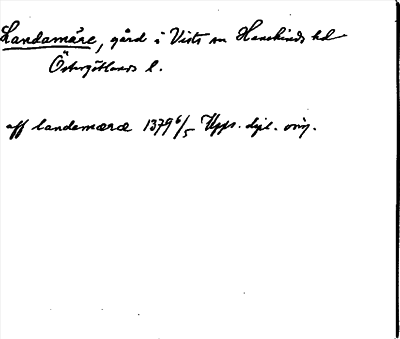 Landamäre, gård i Vists sn Hanekinds hd
Östergötlands l.
aff landamæræ 1379 6/5 Upps. dipl. orig.